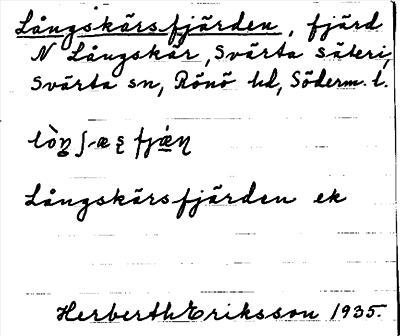 Långskärsfjärden, fjärd
N Långskär, Svärta säteri,
Svärta sn, Rönö hd, Söderm. l.
Långskärsfjärden ek
Herberth Eriksson 1935.